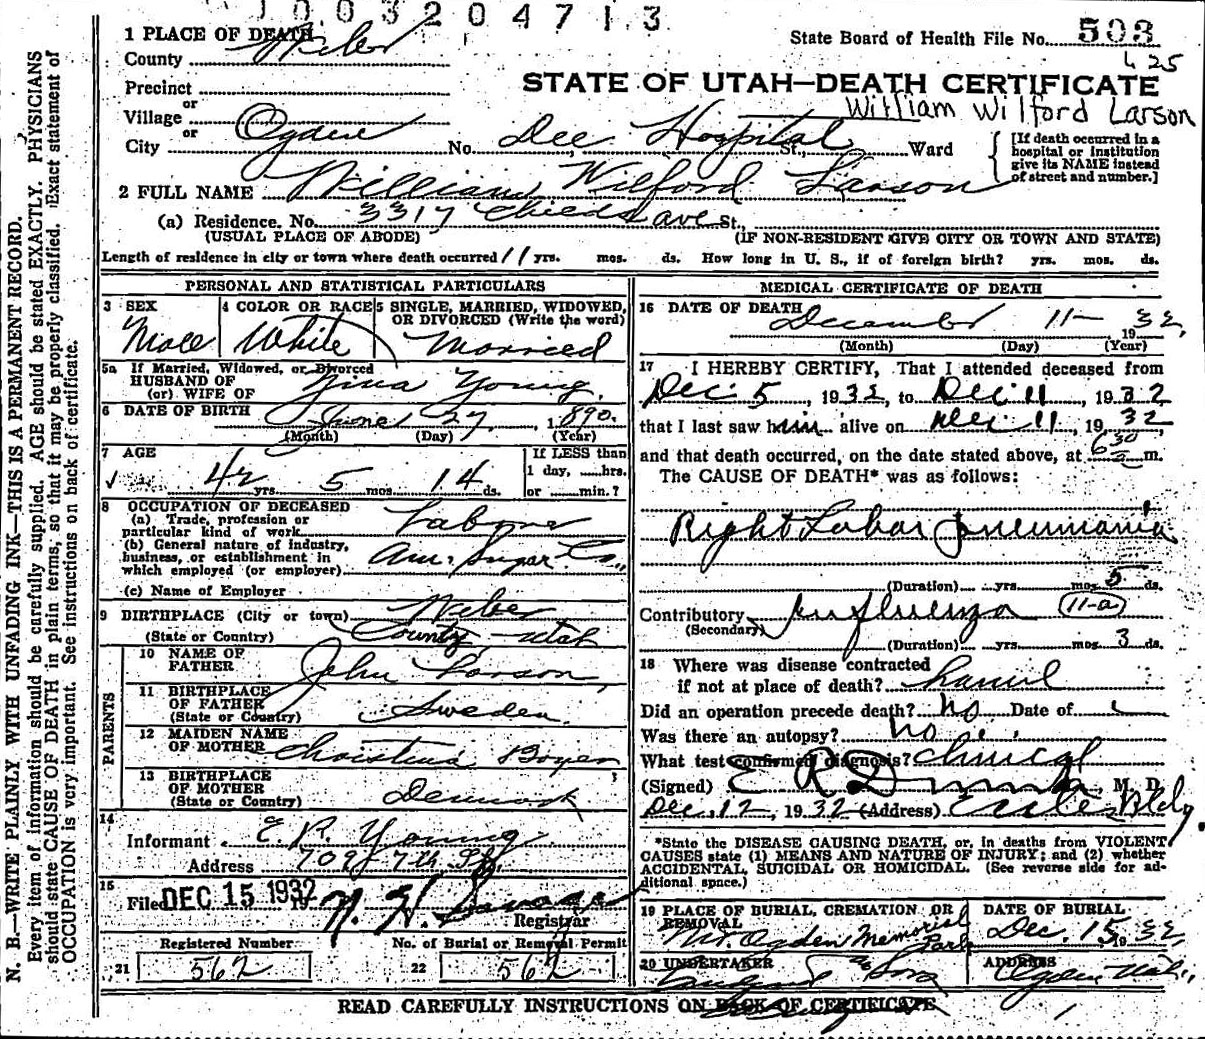 1003204713
1 PLACE OF DEATH
State Board of Health File No. 503
County Weber
425
Precinct
STATE OF UTAH—DEATH CERTIFICATE
or
Village
William Wilford Larson
or
City Ogden No. Dee Hospital St., Ward
[If death occurred in a hospital or institution give its NAME instead of street and number.]
2 FULL NAME William Wilford Larson
(a) Residence. No. 3317 Childs ave St.,
(USUAL PLACE OF ABODE) (IF NON-RESIDENT GIVE CITY OR TOWN AND STATE)
Length of residence in city or town where death occurred 11 yrs. mos. ds. How long in U. S., if of foreign birth? yrs. mos. ds.
PERSONAL AND STATISTICAL PARTICULARS
3 SEX 4 COLOR OR RACE 5 SINGLE, MARRIED, WIDOWED, OR DIVORCED (Write the word)
Male White Married
5a If Married, Widowed, or Divorced
HUSBAND OF
(or) WIFE OF Zina Young
6 DATE OF BIRTH June 27, 1890.
(Month) (Day) (Year)
7 AGE If LESS than
1 day, ......hrs.
42 yrs. 5 mos. 14 ds. or ......min.?
8 OCCUPATION OF DECEASED
(a) Trade, profession or
particular kind of work Laborer
(b) General nature of industry,
business, or establishment in
which employed (or employer) Am. Sugar Co.,
(c) Name of Employer
9 BIRTHPLACE (City or town) Weber
(State or Country) County, Utah
PARENTS
10 NAME OF
FATHER John Larson,
11 BIRTHPLACE
OF FATHER
(State or Country) Sweden.
12 MAIDEN NAME
OF MOTHER Christina Boyer
13 BIRTHPLACE
OF MOTHER
(State or Country) Denmark
14
Informant E. R. Young
Address 702 7th St
15
Filed DEC 15 1932 N. H. Savage
Registrar
Registered Number No. of Burial or Removal Permit
21 562 22 562
MEDICAL CERTIFICATE OF DEATH
16 DATE OF DEATH
December 11- 1932,
(Month) (Day) (Year)
17 I HEREBY CERTIFY, That I attended deceased from
Dec 5, 1932, to Dec 11, 1932
that I last saw him alive on Dec 11, 1932
and that death occurred, on the date stated above, at 6 30 m.
The CAUSE OF DEATH* was as follows:
Right Lobar pneumonia
(Duration) yrs. mos. 5 ds.
Contributory Influenza 11-a
(Secondary)
(Duration) yrs. mos. 3 ds.
18 Where was disease contracted
if not at place of death?
Did an operation precede death? No Date of
Was there an autopsy? No
What test confirmed diagnosis? Clinical
(Signed) E R M. D.
Dec, 12, 1932 (Address) Eccles Bldg.
*State the DISEASE CAUSING DEATH, or, in deaths from VIOLENT
CAUSES state (1) MEANS AND NATURE OF INJURY; and (2) whether
ACCIDENTAL, SUICIDAL OR HOMICIDAL. (See reverse side for ad-
ditional space.)
19 PLACE OF BURIAL, CREMATION OR REMOVAL DATE OF BURIAL
Mt. Ogden Memorial Park Dec. 15 1932,
20 UNDERTAKER ADDRESS
& Sons Ogden Utah,
READ CAREFULLY INSTRUCTIONS ON BACK OF CERTIFICATE
N. B.—WRITE PLAINLY WITH UNFADING INK—THIS IS A PERMANENT RECORD.
Every item of information should be carefully supplied. AGE should be stated EXACTLY. PHYSICIANS
should state CAUSE OF DEATH in plain terms, so that it may be properly classified. Exact statement of
OCCUPATION is very important. See instructions on back of certificate.